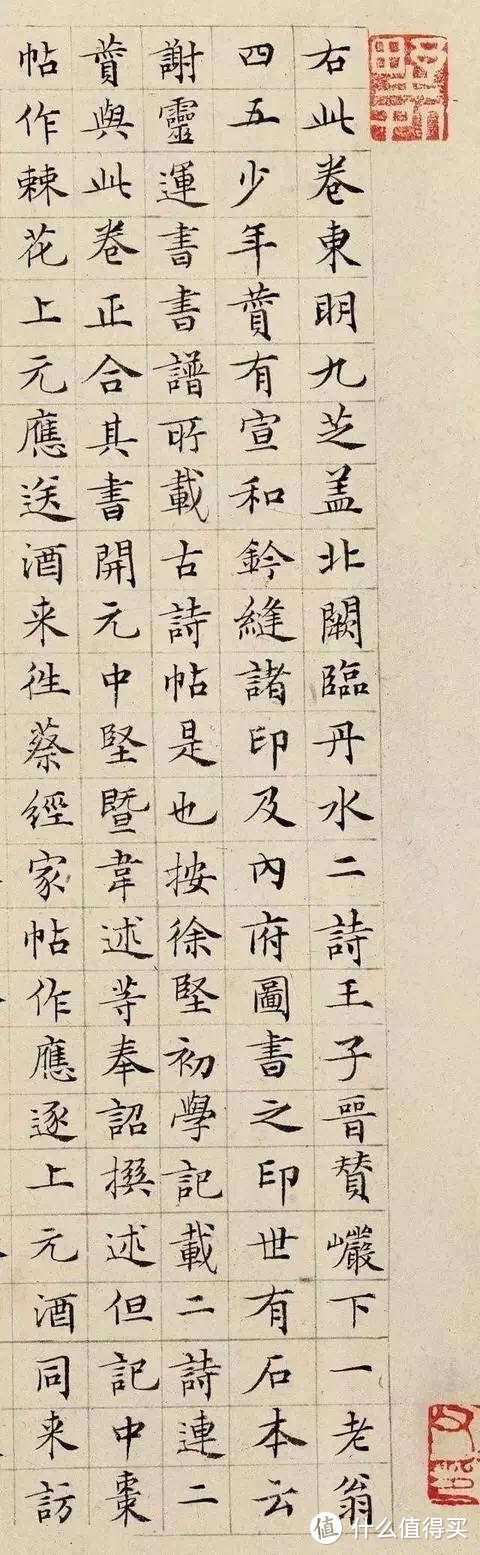 右此卷東明九芝盖北闕臨丹水二詩王子晉賛巗下一老翁
四五少年賛有宣和鈐縫諸印及内府圖書之印世有石本云
謝靈運書書譜所載古詩帖是也按徐堅初學記載二詩連二
賛與此卷正合其書開元中堅暨韋述等奉詔撰述但記中棗
帖作棘花上元應送酒来徃蔡經家帖作應逐上元酒同来訪
值 什么值得买